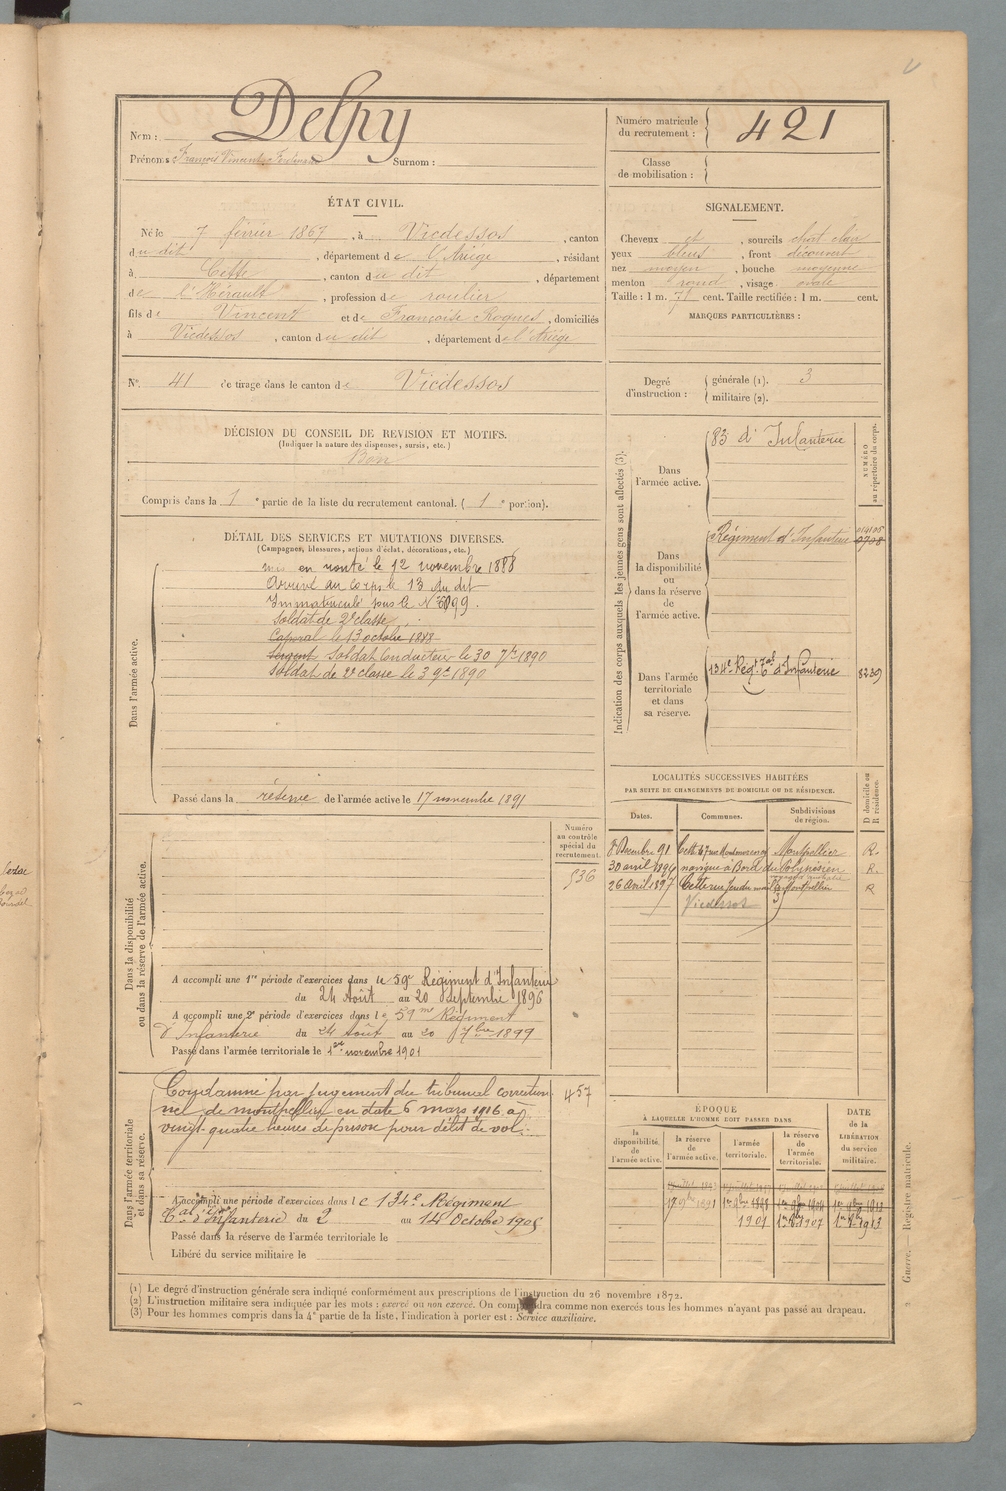 Nom : Delpy
Prénoms François Vincent Ferdinand Surnom :
Numéro matricule
du recrutement :
421
Classe
de mobilisation :
ÉTAT CIVIL.
Né le 7 février 1867, à Vicdessos, canton
du dit, département de l'Ariège, résidant
à Cette, canton du dit, département
de l'Hérault, profession de roulier
fils de Vincent et de Françoise Roques, domiciliés
à Vicdessos, canton du dit, département de l'Ariège
N° 41 de tirage dans le canton de Vicdessos
SIGNALEMENT.
Cheveux et, sourcils chat clair
yeux bleus, front découvert
nez moyen, bouche moyenne
menton rond, visage ovale
Taille : 1 m. 71 cent. Taille rectifiée : 1 m. cent.
MARQUES PARTICULIÈRES :
Degré
d'instruction :
générale (1). 3
militaire (2).
DÉCISION DU CONSEIL DE REVISION ET MOTIFS.
(Indiquer la nature des dispenses, sursis, etc.)
Bon
Compris dans la 1e partie de la liste du recrutement cantonal. (1e portion).
DÉTAIL DES SERVICES ET MUTATIONS DIVERSES.
(Campagnes, blessures, actions d'éclat, décorations, etc.)
Dans l'armée active.
mis en route le 12 novembre 1888
Arrivé au corps le 13 du dit
Immatriculé sous le N°
Soldat de 2e classe
Caporal le 13 octobre 1888
Sergent Soldat Conducteur le 30 7bre 1890
Soldat de 2e classe le 3 9bre 1890
Passé dans la réserve de l'armée active le 17 novembre 1891
Indication des corps auxquels les jeunes gens sont affectés (3).
NUMÉRO
au répertoire du corps.
Dans
l'armée active.
83 d'Infanterie
Dans
la disponibilité
ou
dans la réserve
de
l'armée active.
Régiment d'Infanterie
0708
Dans l'armée
territoriale
et dans
sa réserve.
134e Régt Tal d'Infanterie
8239
LOCALITÉS SUCCESSIVES HABITÉES
PAR SUITE DE CHANGEMENTS DE DOMICILE OU DE RÉSIDENCE.
D domicile ou
R résidence.
Dates. Communes. Subdivisions
de région.
8 Décembre 91 Cette 47 rue Montmorency Montpellier R.
30 avril 1896 navigue à Bord du Polynésien R.
26 Avril 1897 Cette rue Montpellier R
Vicdessos
Dans la disponibilité
ou dans la réserve de l'armée active.
Numéro
au contrôle
spécial du
recrutement.
536
A accompli une 1re période d'exercices dans le 59e Régiment d'Infanterie
du 24 Août au 20 Septembre 1896
A accompli une 2e période d'exercices dans le 59me Régiment
d'Infanterie du 24 Août au 20 7bre 1899
Passé dans l'armée territoriale le 1er novembre 1901
Dans l'armée territoriale
et dans sa réserve.
Condamné par jugement du tribunal correction
nel de montpellier en date 6 mars 1916 à
vingt-quatre heures de prison pour délit de vol.
457
A accompli une période d'exercices dans le 134e Régiment
Tal d'Infanterie du 2 au 14 Octobre 1905
Passé dans la réserve de l'armée territoriale le
Libéré du service militaire le
ÉPOQUE
À LAQUELLE L'HOMME DOIT PASSER DANS
DATE
de la
LIBÉRATION
du service
militaire.
la
disponibilité
de
l'armée active.
la réserve
de
l'armée active.
l'armée
territoriale.
la réserve
de
l'armée
territoriale.
1901 1er 9bre 1907 1er 9bre 1913
(1) Le degré d'instruction générale sera indiqué conformément aux prescriptions de l'instruction du 26 novembre 1872.
(2) L'instruction militaire sera indiquée par les mots : exercé ou non exercé. On comprendra comme non exercés tous les hommes n'ayant pas passé au drapeau.
(3) Pour les hommes compris dans la 4e partie de la liste, l'indication à porter est : Service auxiliaire.
Guerre. — Registre matricule.